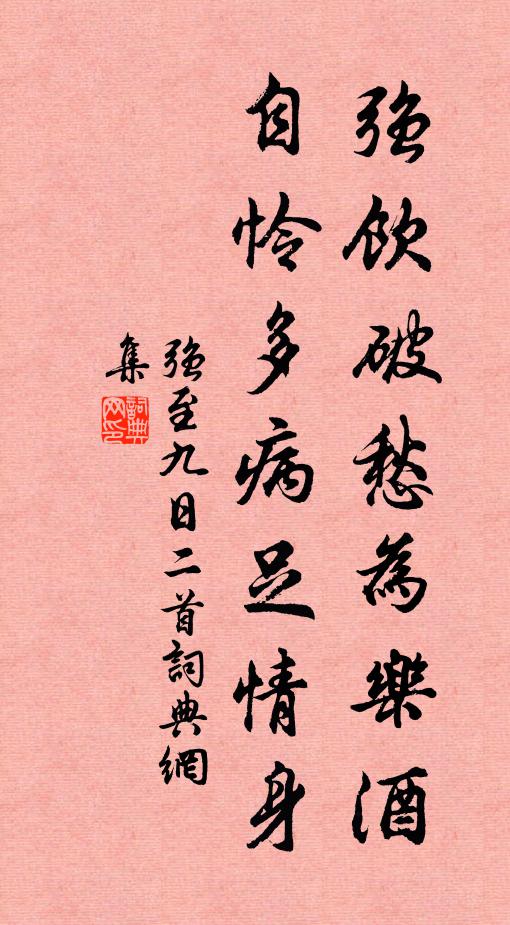 強飲破愁為樂酒
自憐多病足情身
強至九日二首詞典網
集
詞典
网印